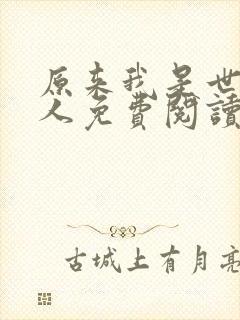 原来我是世
人免费阅读
古城上有月亮